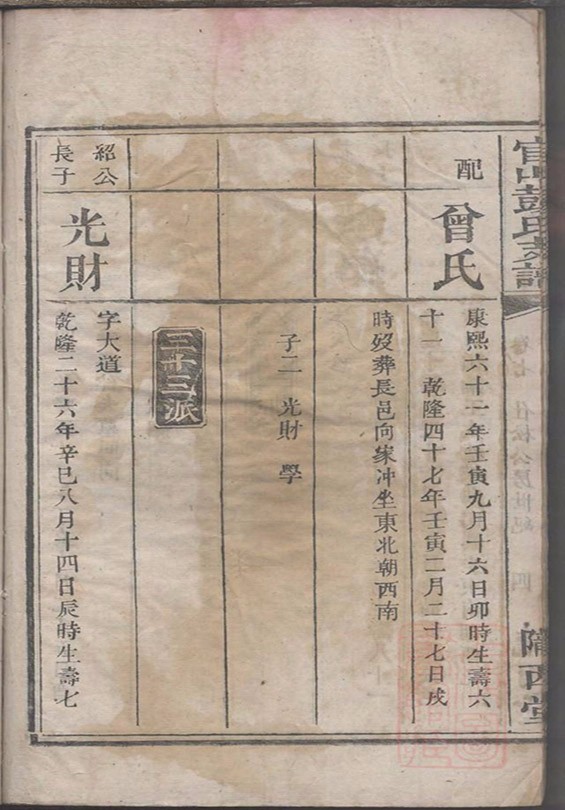 官山彭氏支譜
隴西堂
配
曾氏
康熙六十一年壬寅九月十六日卯時生壽六
十一 乾隆四十七年壬寅二月二十七日戌
時歿葬長邑向家冲坐東北朝西南
子二 光財 學
三十三派
紹公
長子
光財
字大道
乾隆二十六年辛巳八月十四日辰時生壽七